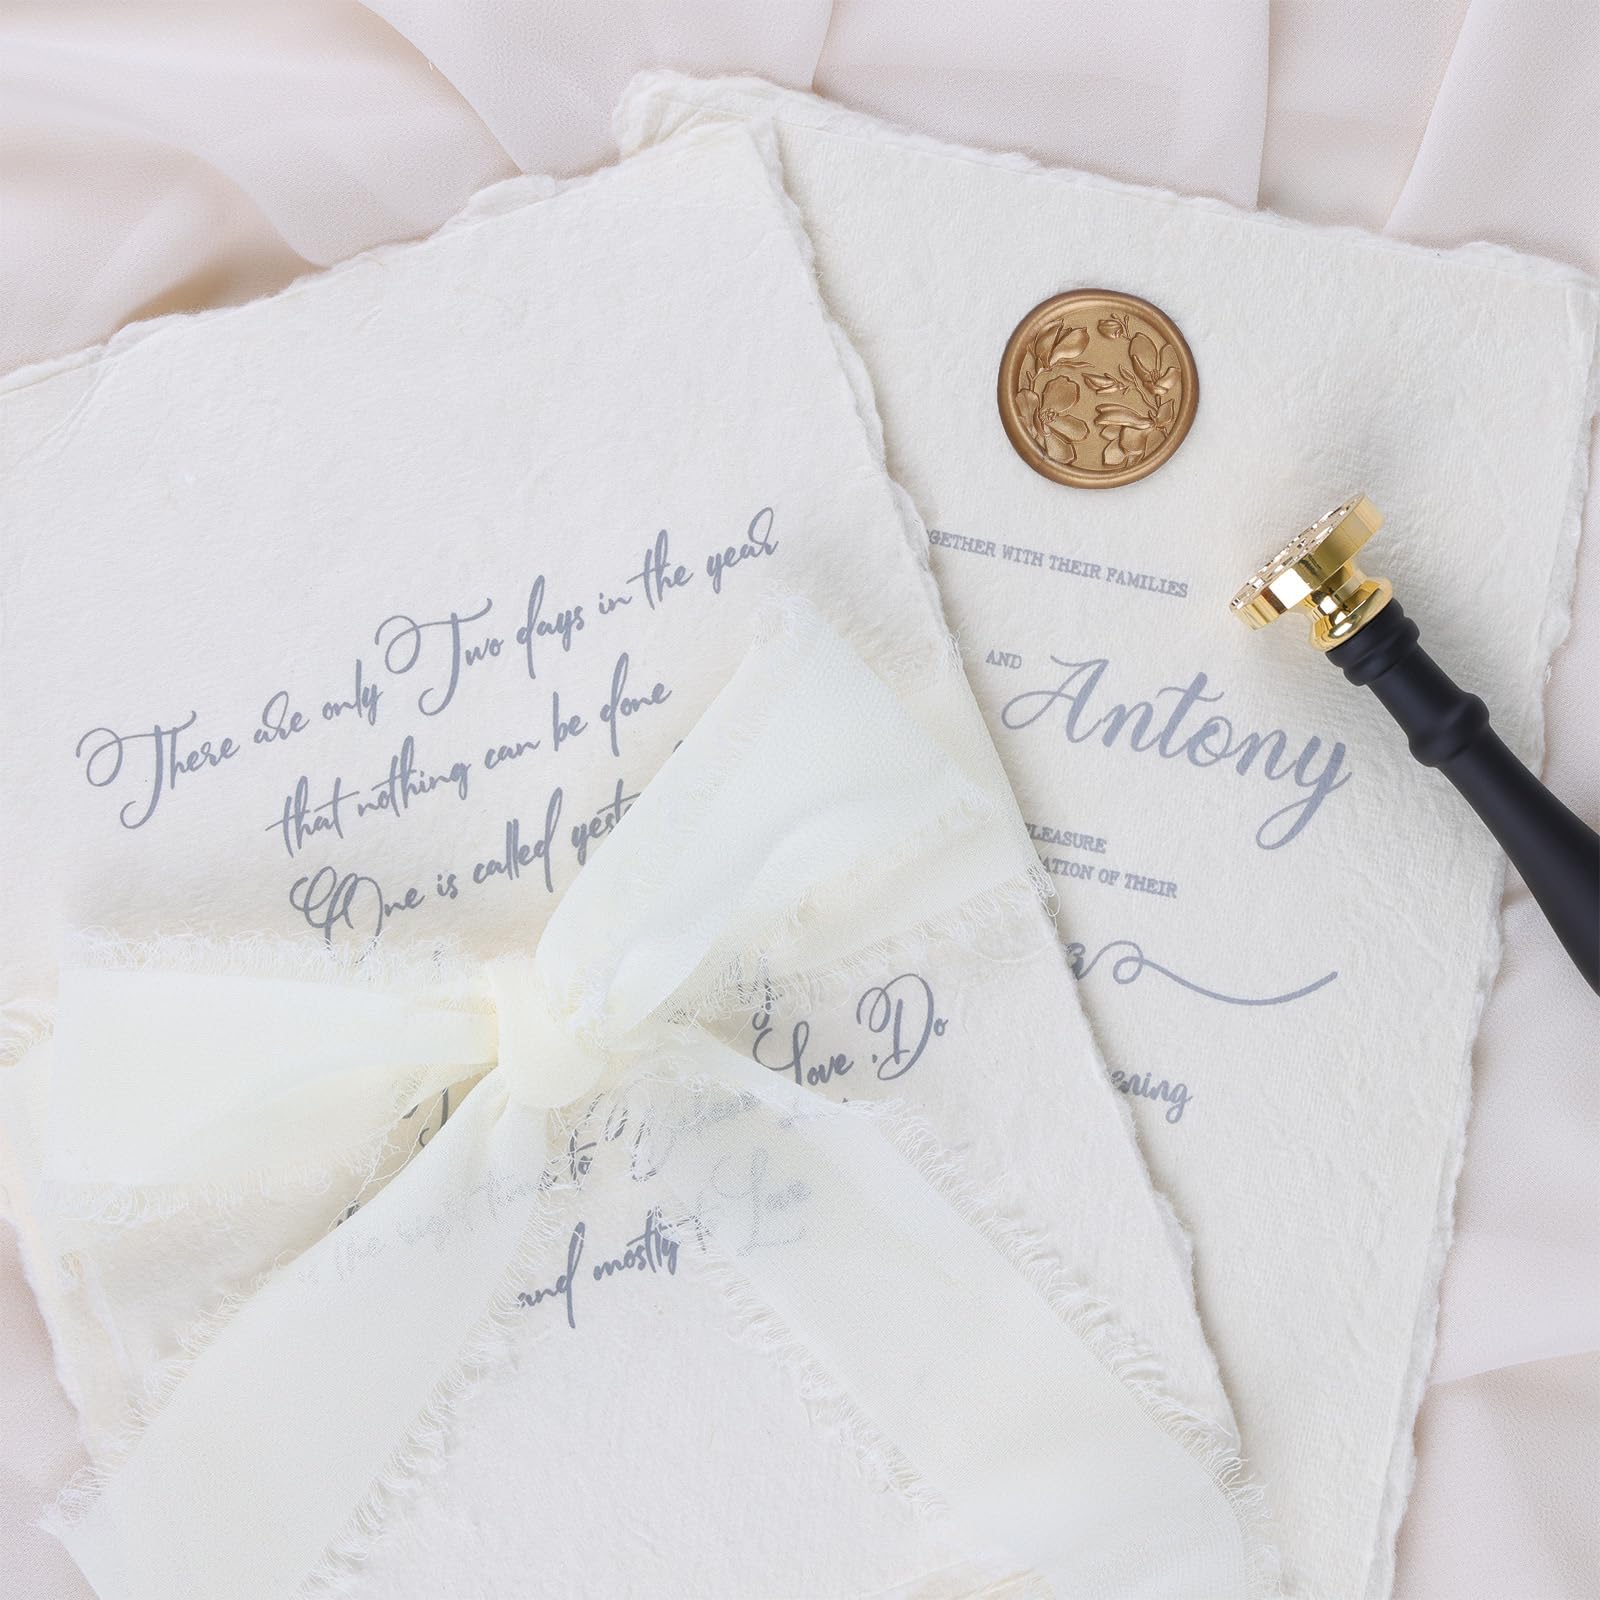 There are only Two days in the year
that nothing can be done
One is called
Love, Do
the right to
and mostly
GETHER WITH THEIR FAMILIES
AND Antony
LEASURE
ATION OF THEIR
ening